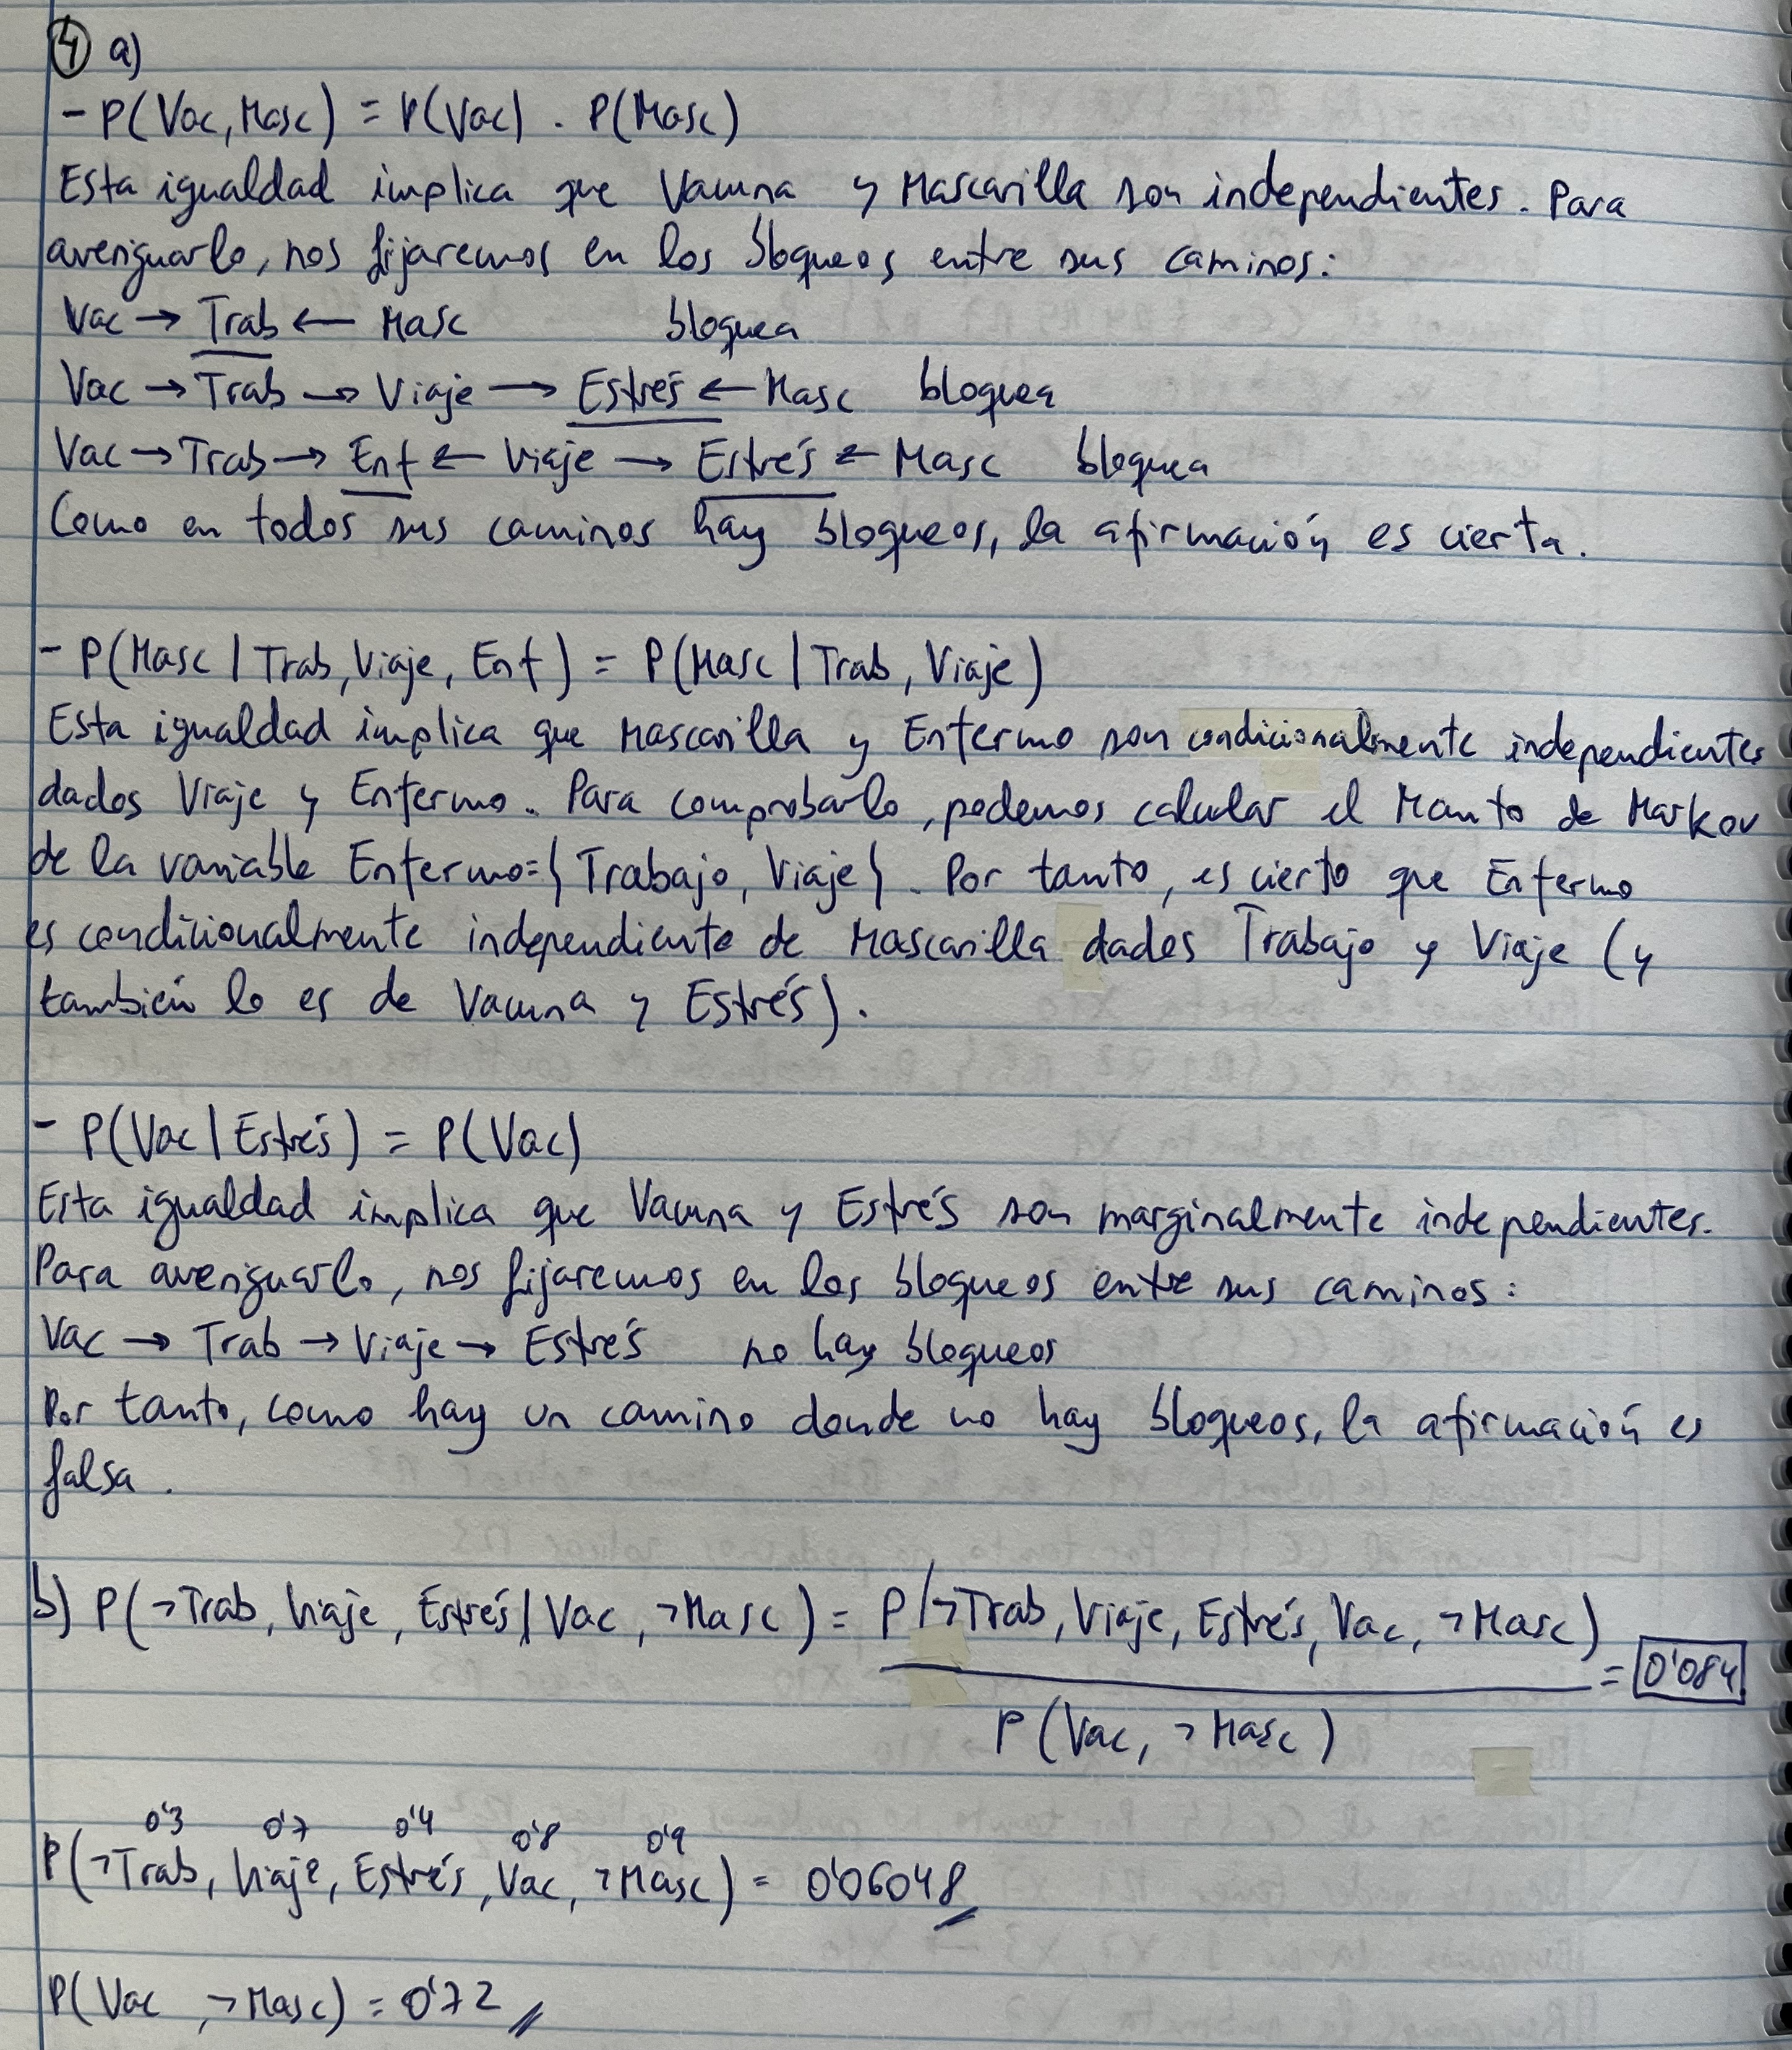 ④ a)
- P(Vac, Masc) = P(Vac) · P(Masc)
Esta igualdad implica que Vacuna y Mascarilla son independientes. Para
averiguarlo, nos fijaremos en los bloqueos entre sus caminos:
Vac → Trab ← Masc bloquea
Vac → Trab → Viaje → Estrés ← Masc bloquea
Vac → Trab → Enf ← Viaje → Estrés ← Masc bloquea
Como en todos sus caminos hay bloqueos, la afirmación es cierta.
- P(Masc | Trab, Viaje, Enf) = P(Masc | Trab, Viaje)
Esta igualdad implica que Mascarilla y Enfermo son condicionalmente independientes
dados Viaje y Enfermo. Para comprobarlo, podemos calcular el Manto de Markov
de la variable Enfermo={Trabajo, Viaje}. Por tanto, es cierto que Enfermo
es condicionalmente independiente de Mascarilla dados Trabajo y Viaje (y
también lo es de Vacuna y Estrés).
- P(Vac | Estrés) = P(Vac)
Esta igualdad implica que Vacuna y Estrés son marginalmente independientes.
Para averiguarlo, nos fijaremos en los bloqueos entre sus caminos:
Vac → Trab → Viaje → Estrés no hay bloqueos
Por tanto, como hay un camino donde no hay bloqueos, la afirmación es
falsa.
b) P(¬Trab, Viaje, Estrés | Vac, ¬Masc) = P(¬Trab, Viaje, Estrés, Vac, ¬Masc)
= 0'084
P(Vac, ¬Masc)
0'3 0'7 0'4 0'8 0'9
P(¬Trab, Viaje, Estrés, Vac, ¬Masc) = 0'06048
P(Vac, ¬Masc) = 0'72